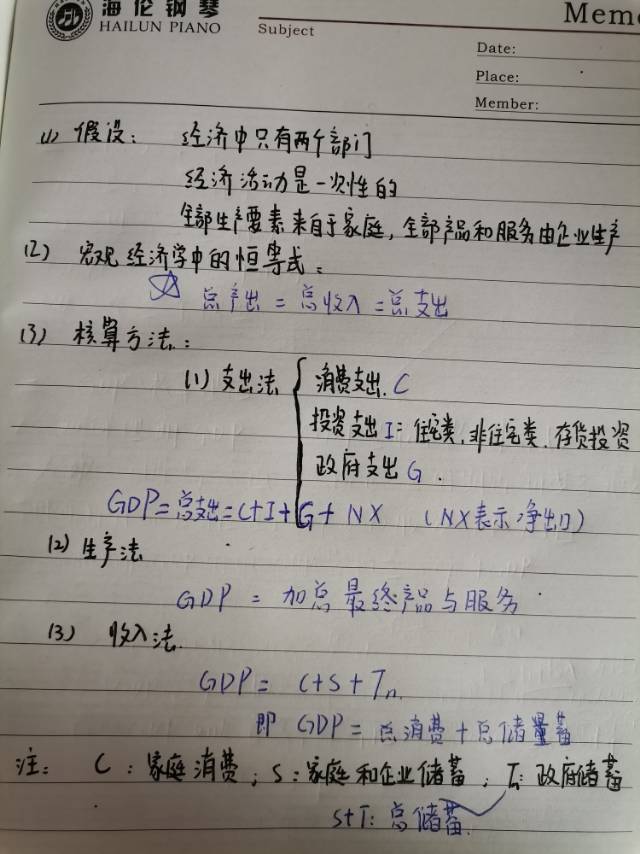 海伦钢琴
HAILUN PIANO
Subject
Memo
Date:
Place:
Member:
(1) 假设: 经济中只有两个部门
经济活动是一次性的
全部生产要素来自于家庭,全部产品和服务由企业生产
(2) 宏观经济学中的恒等式:
☆ 总产出 = 总收入 = 总支出
(3) 核算方法:
(1) 支出法
消费支出. C
投资支出 I: 住宅类, 非住宅类, 存货投资
政府支出 G.
GDP=总支出=C+I+G+NX (NX表示净出口)
(2) 生产法
GDP = 加总最终产品与服务
(3) 收入法.
GDP = C+S+Tn.
即 GDP = 总消费+总储蓄
注: C:家庭消费; S:家庭和企业储蓄; Tn:政府储蓄
S+T: 总储蓄.